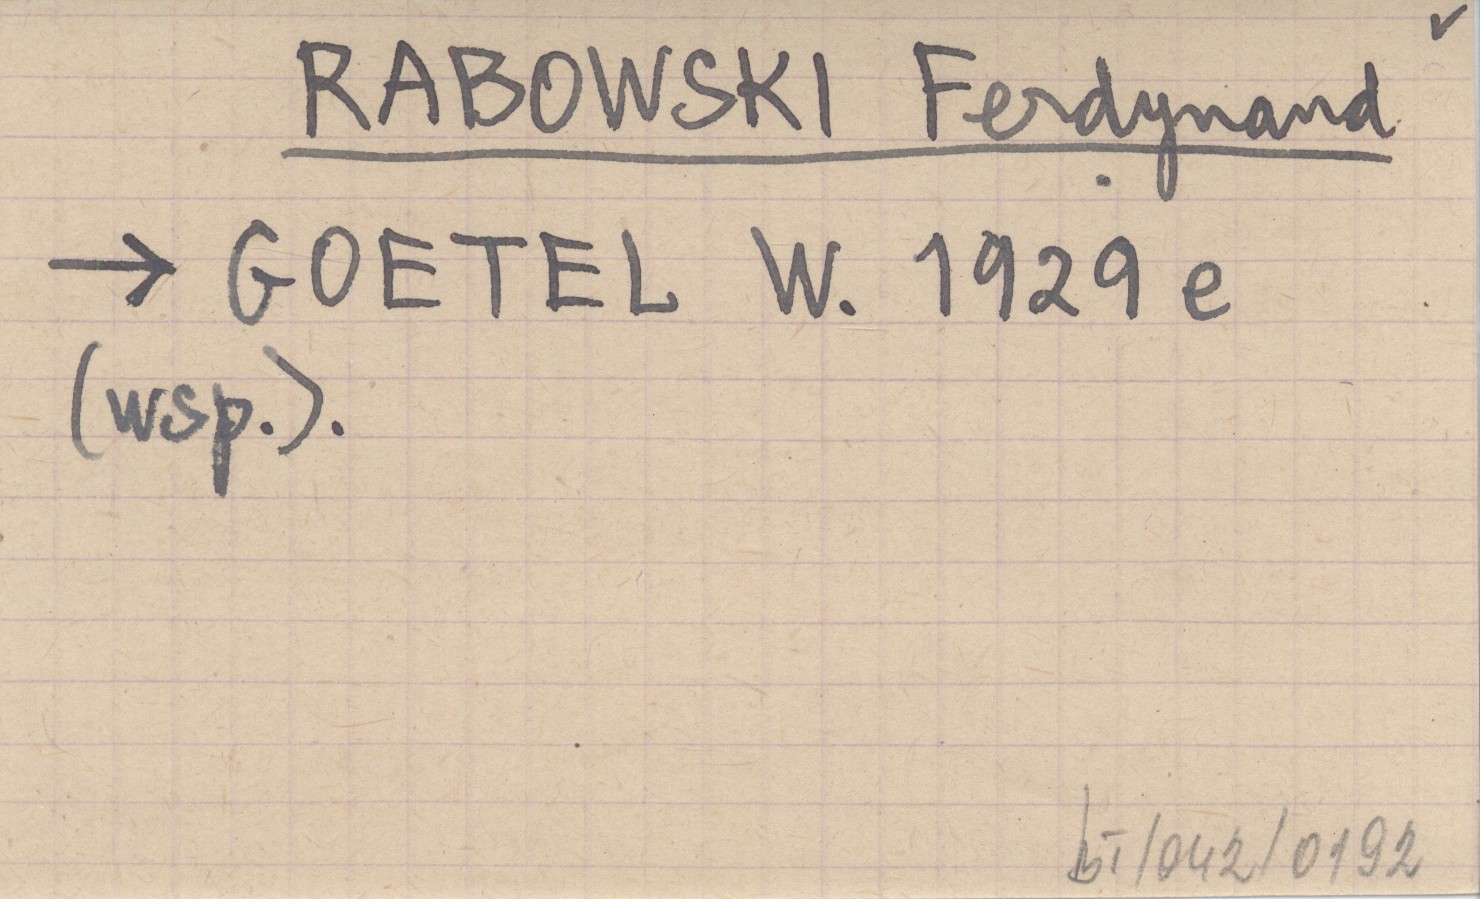 RABOWSKI Ferdynand
→ GOETEL W. 1929 e
(wsp.).
bT/042/0192